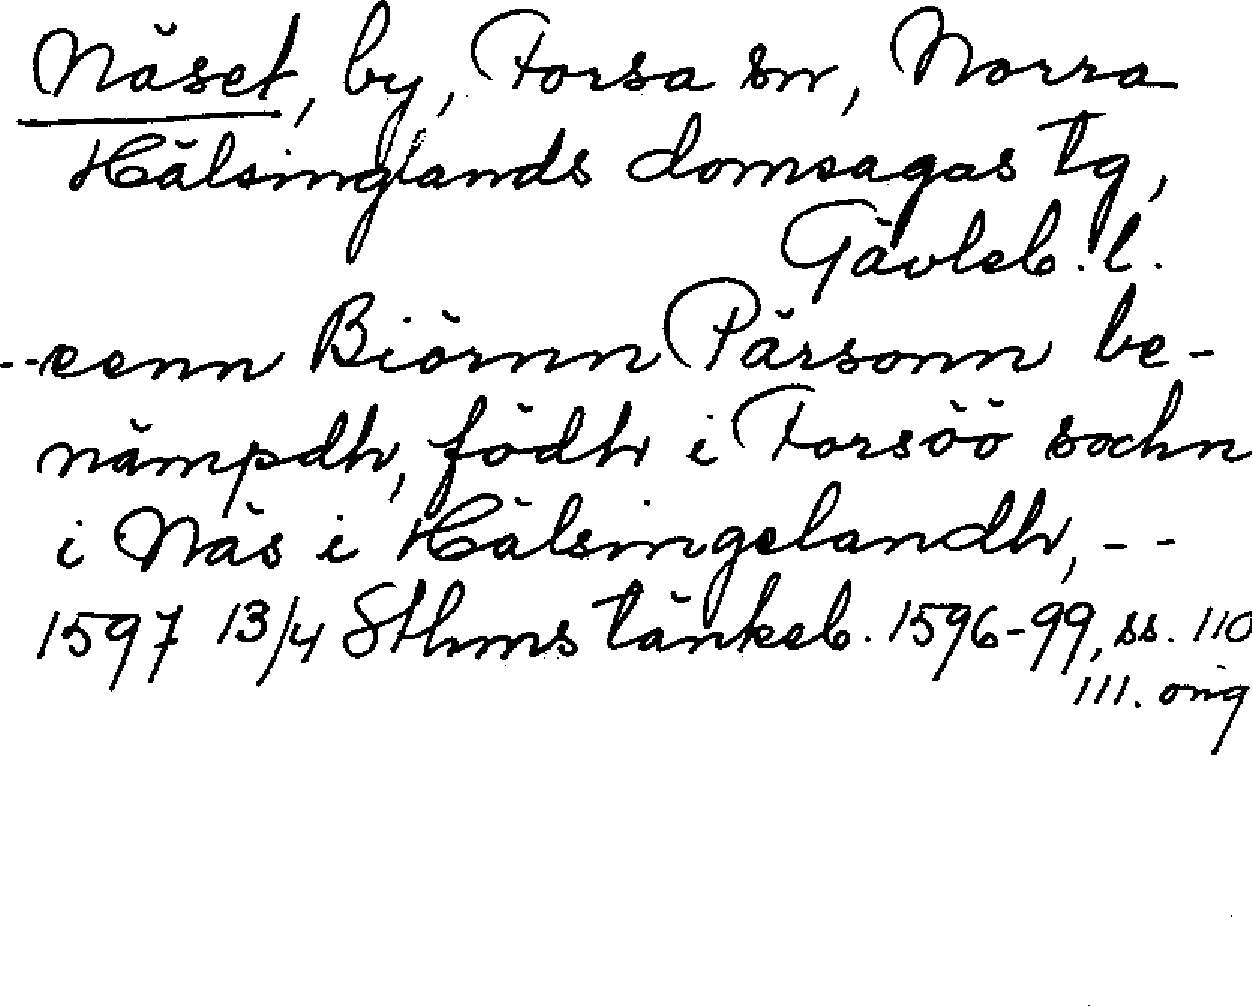 Näset, by, Forsa sn, Norra
Hälsinglands domsagas tg,
Gävleb. l.
--eenn Biörnn Pärsonn be-
nämpdh, födh i Forsöö sochn
i Näs i Hälsingelandh, --
1597 13/4 Sthms tänkeb. 1596-99, ss. 110
111. orig